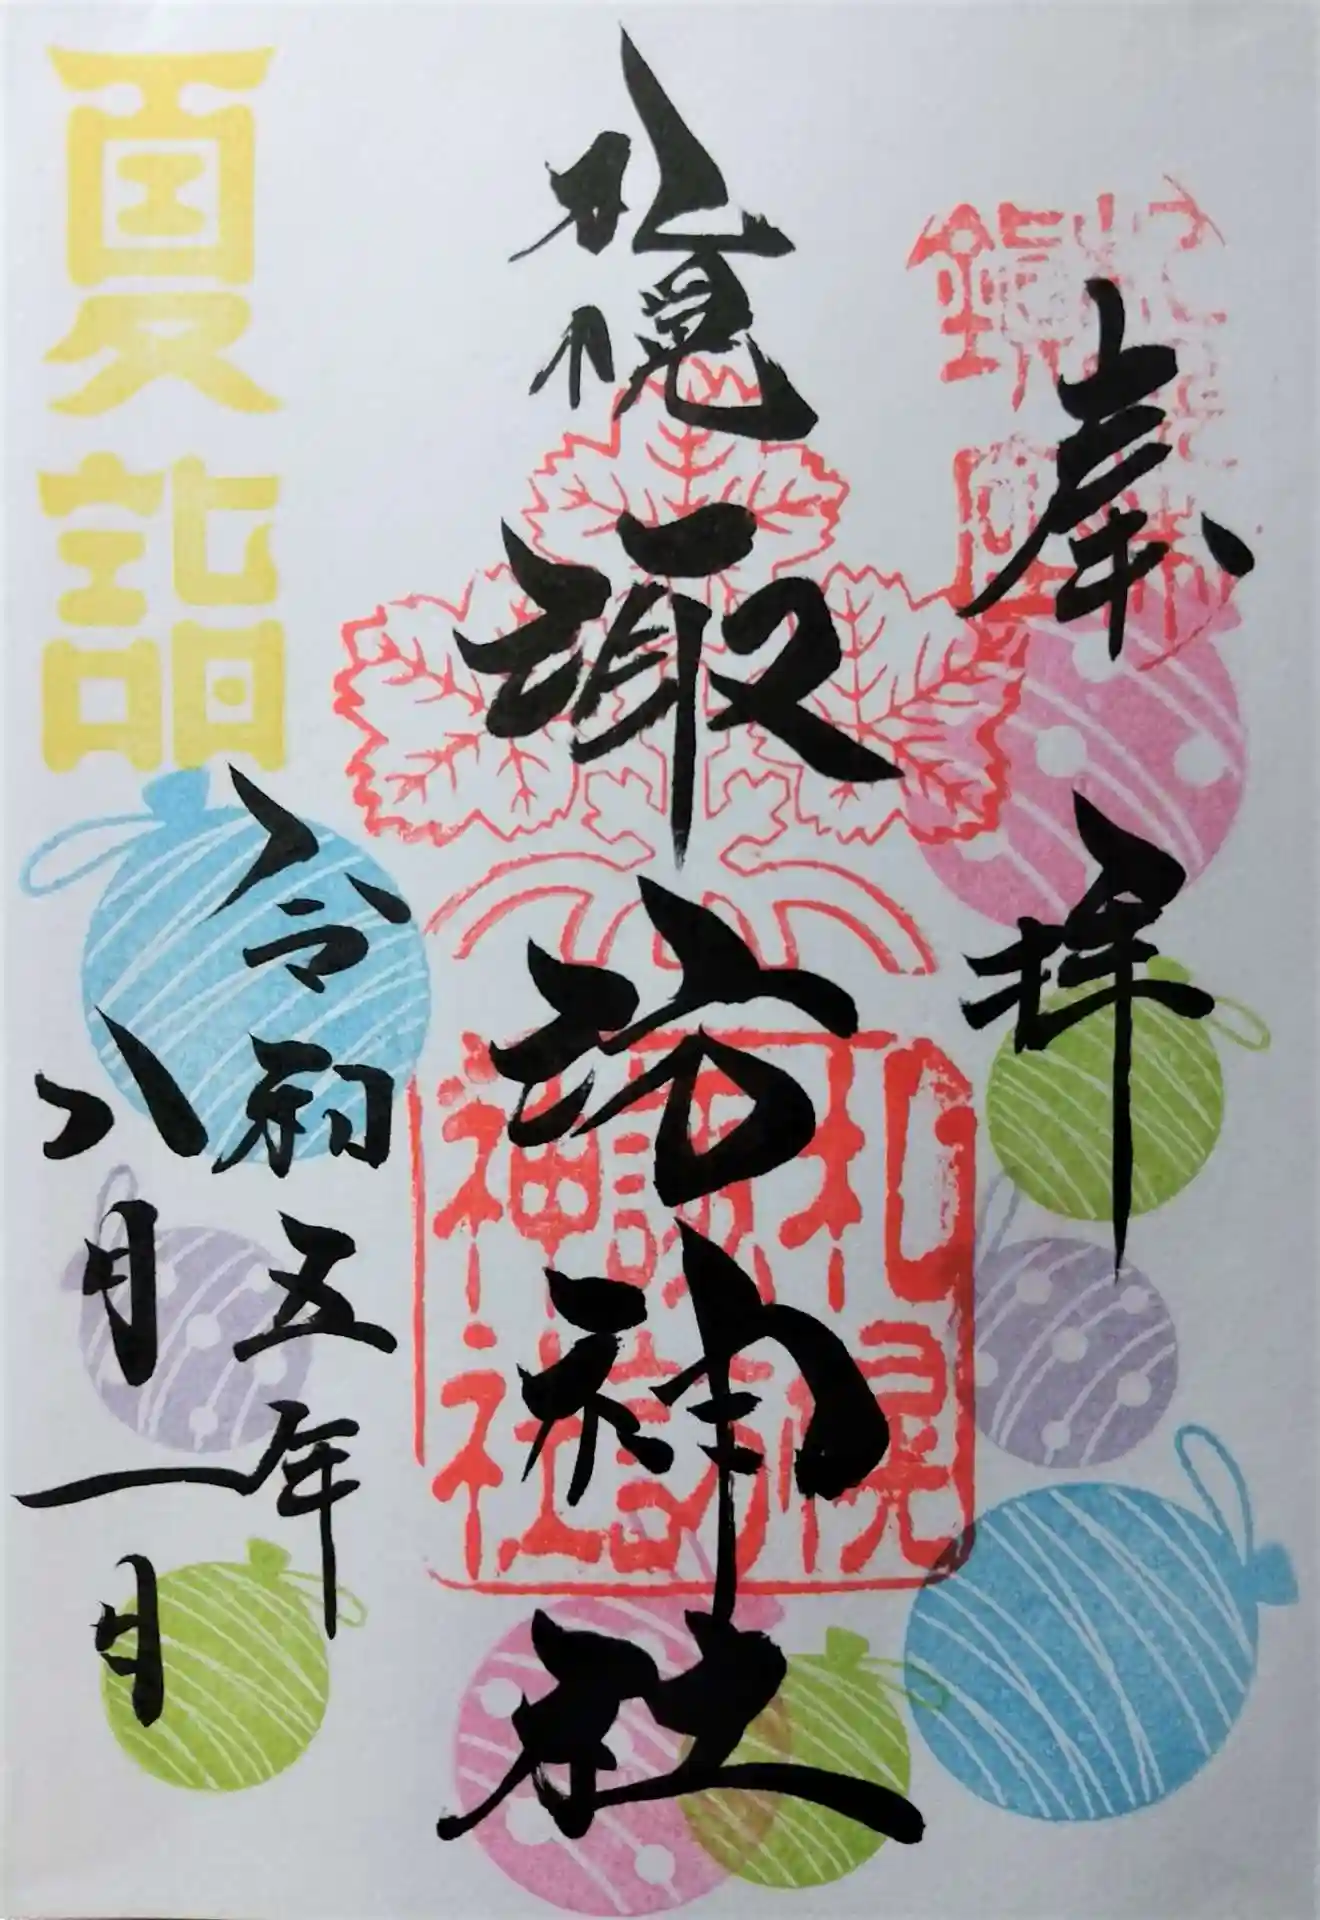 奉拝
札幌
諏訪神社
札幌
諏訪
神社
令和五年
八月一日
夏詣